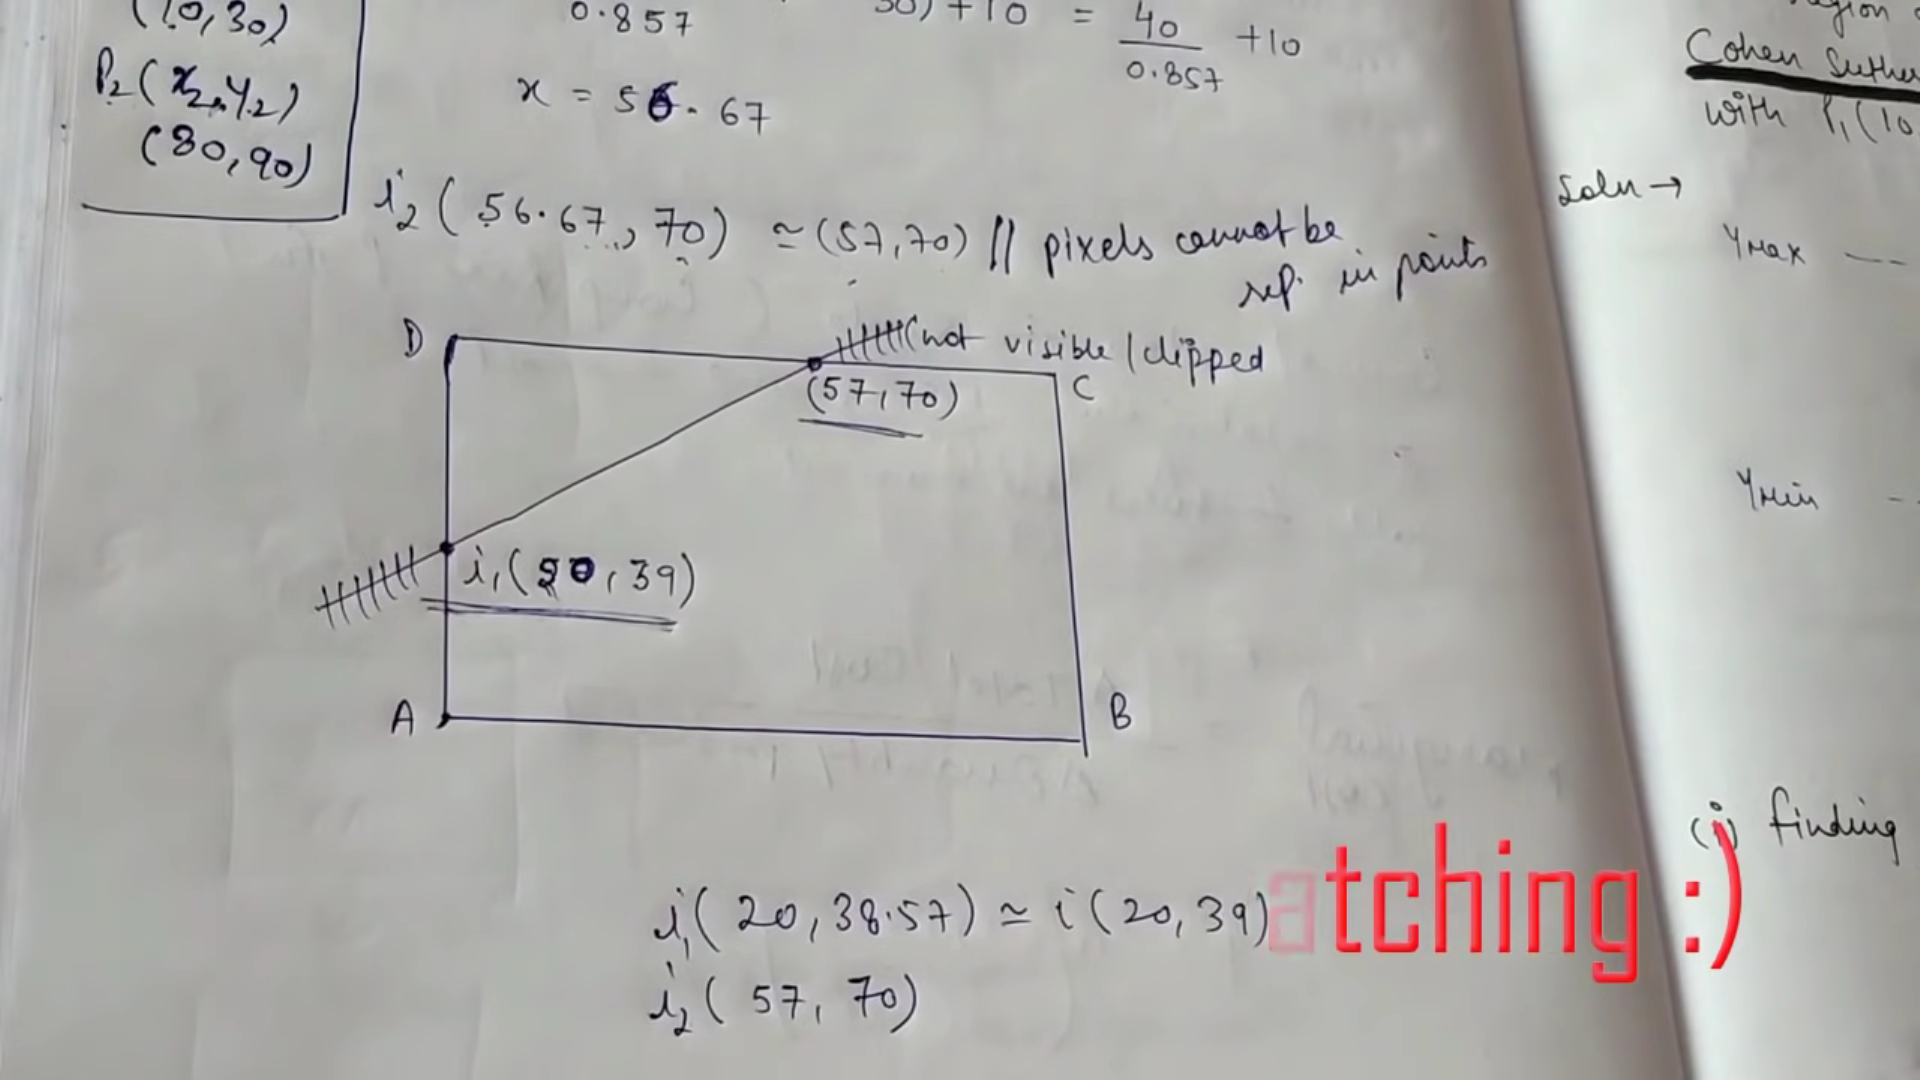 (10,30)
P2(x2,y2)
(80,90)
0.857
30) + 10 = 40/0.857 + 10
x = 56.67
i2(56.67, 70) ≃ (57,70) // pixels cannot be
rep. in points
D
(not visible / clipped
C
(57,70)
i1(20,39)
A
B
i1(20,38.57) ≃ i(20,39)
i2(57, 70)
atching :)
Cohen Suther
with P1(10
Soln →
YMax
YMin
(i) finding